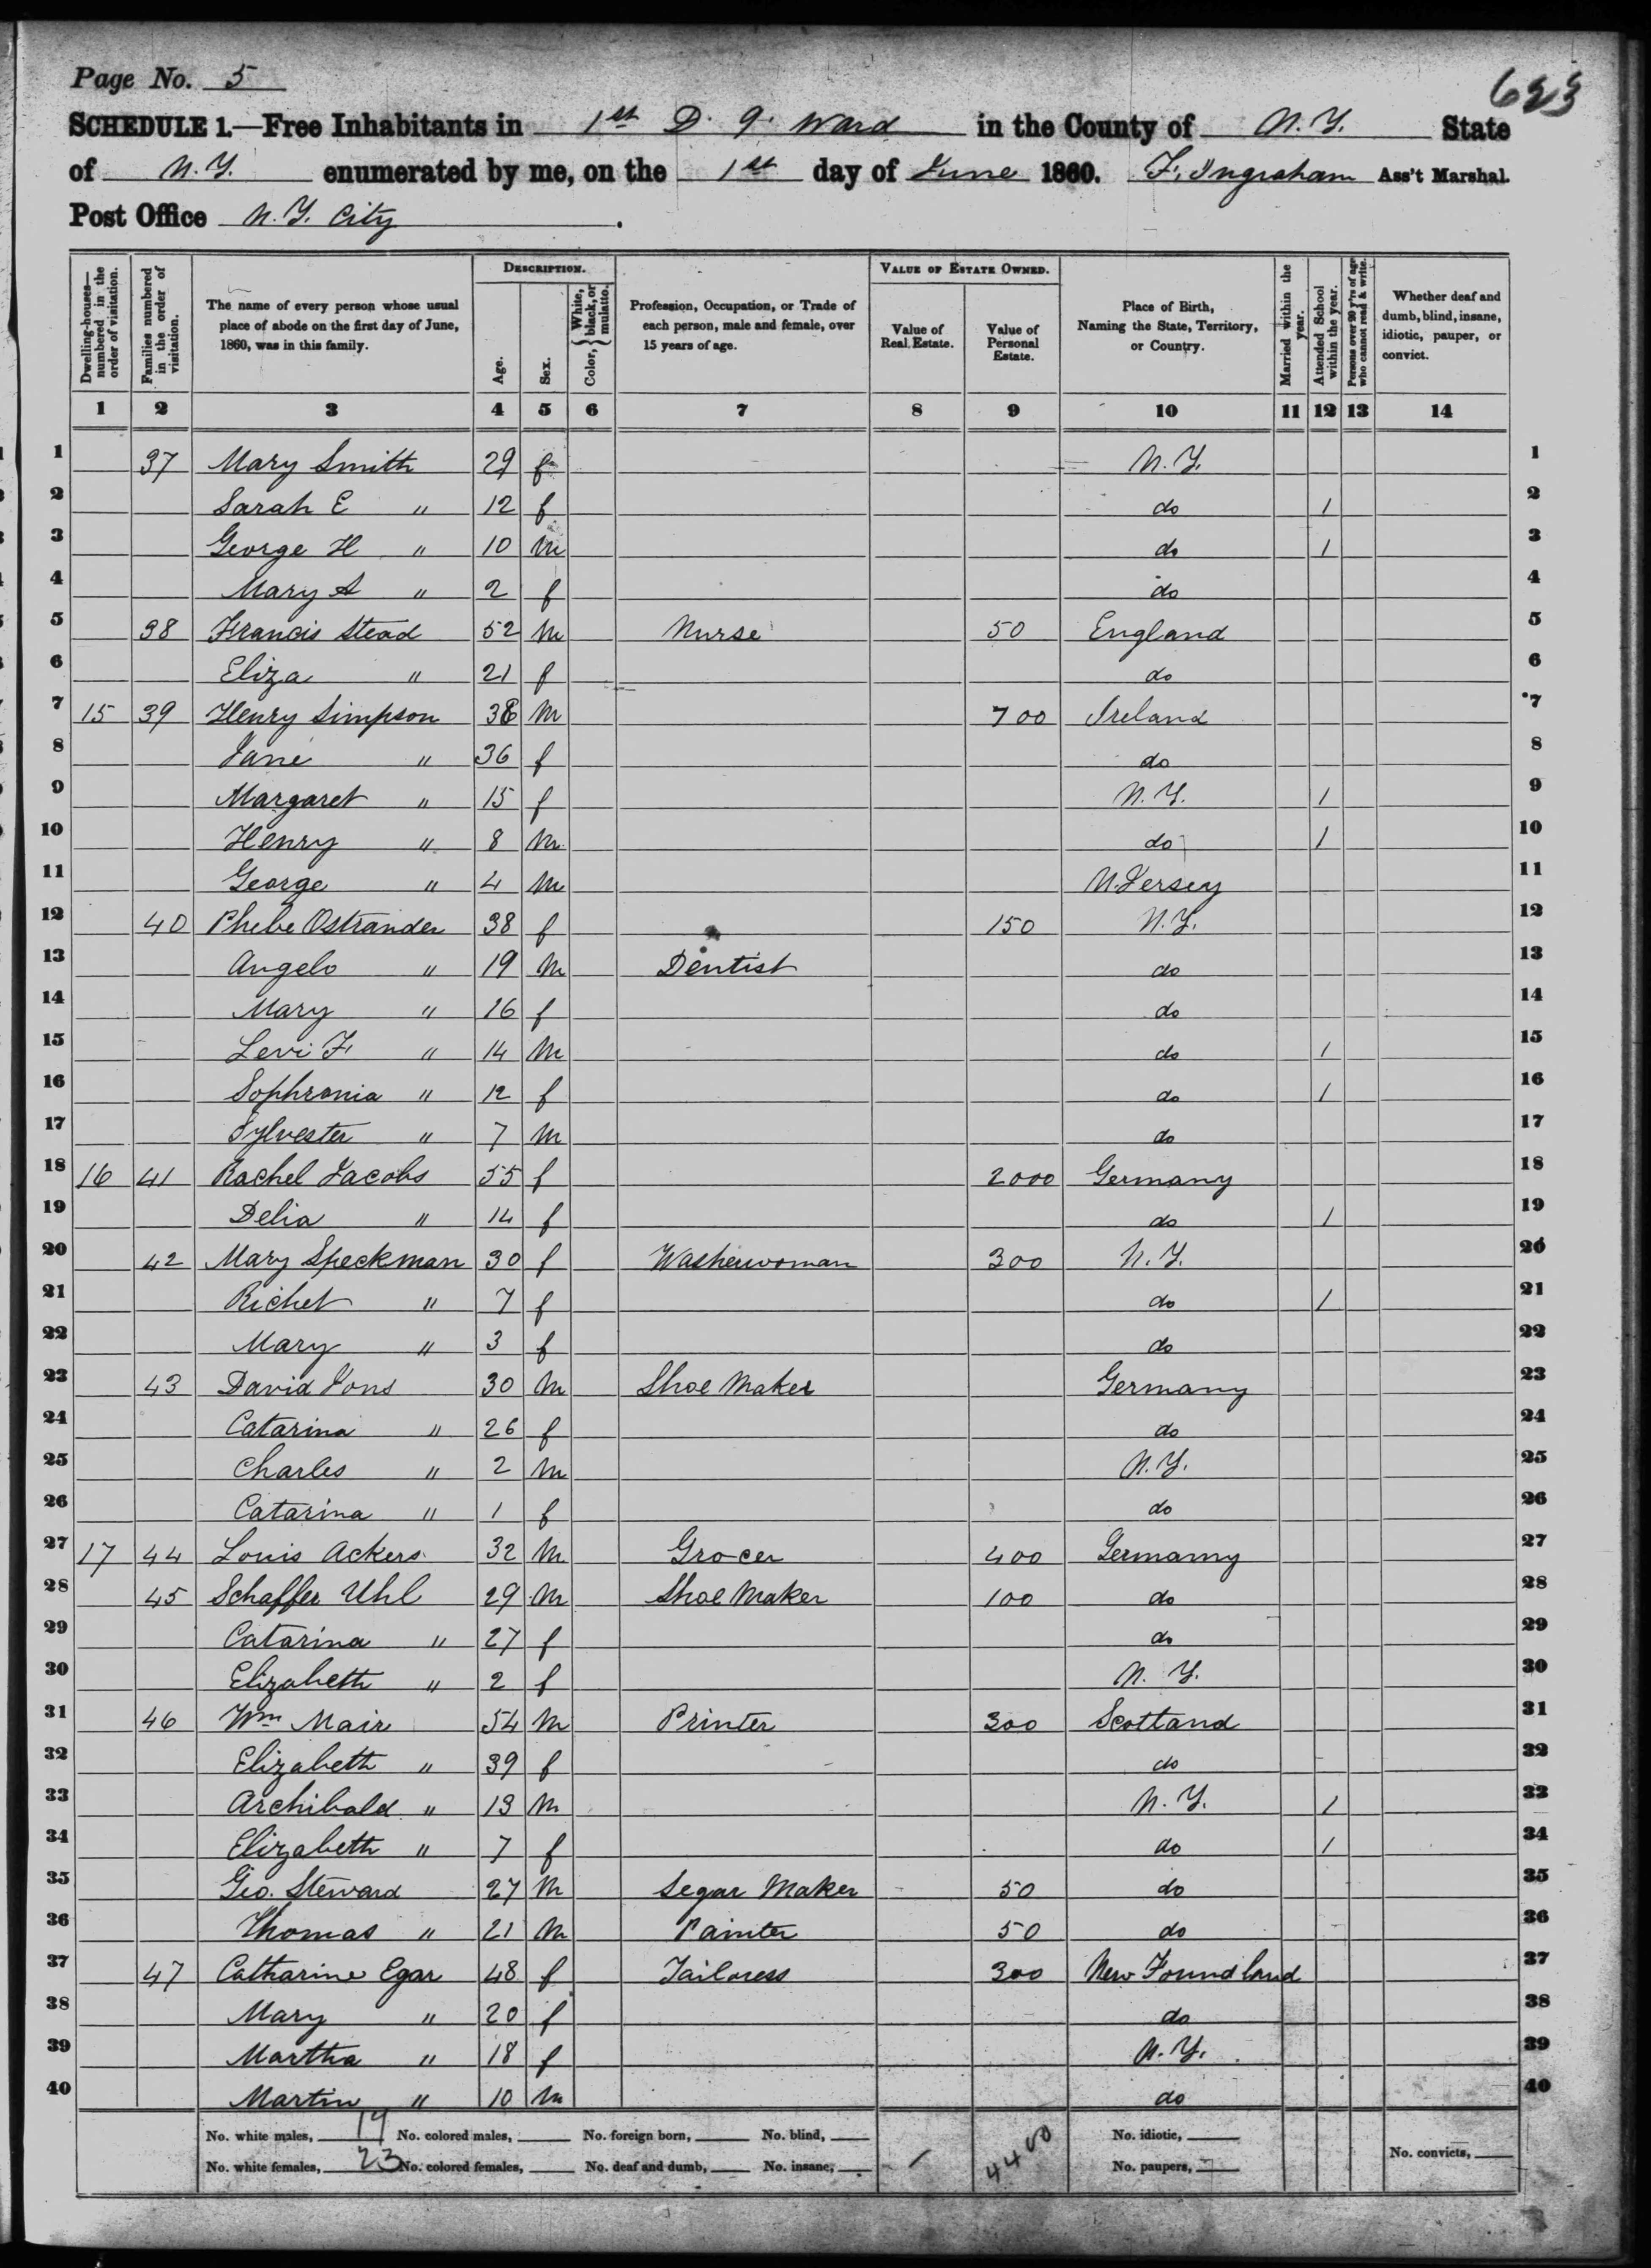 Page No. 5
623
SCHEDULE 1.—Free Inhabitants in 1st D. 9. Ward in the County of N.Y. State
of N.Y. enumerated by me, on the 1st day of June 1860. F. Ingraham Ass't Marshal.
Post Office N.Y. City.
Dwelling-houses—numbered in the order of visitation.
Families numbered in the order of visitation.
The name of every person whose usual place of abode on the first day of June, 1860, was in this family.
DESCRIPTION.
Age.
Sex.
Color, {White, black, or mulatto.
Profession, Occupation, or Trade of each person, male and female, over 15 years of age.
VALUE OF ESTATE OWNED.
Value of Real Estate.
Value of Personal Estate.
Place of Birth, Naming the State, Territory, or Country.
Married within the year.
Attended School within the year.
Persons over 20 y'rs of age who cannot read & write.
Whether deaf and dumb, blind, insane, idiotic, pauper, or convict.
1 2 3 4 5 6 7 8 9 10 11 12 13 14
1 37 Mary Smith 29 f N.Y. 1
2 Sarah E " 12 f do 1 2
3 George H " 10 m do 1 3
4 Mary A " 2 f do 4
5 38 Francis Stead 52 m Nurse 50 England 5
6 Eliza " 21 f do 6
7 15 39 Henry Simpson 38 m 700 Ireland 7
8 Jane " 36 f do 8
9 Margaret " 15 f N.Y. 1 9
10 Henry " 8 m do 1 10
11 George " 4 m N. Jersey 11
12 40 Phebe Ostrander 38 f 150 N.Y. 12
13 Angelo " 19 m Dentist do 13
14 Mary " 16 f do 14
15 Levi F. " 14 m do 1 15
16 Sophronia " 12 f do 1 16
17 Sylvester " 7 m do 17
18 16 41 Rachel Jacobs 55 f 2000 Germany 18
19 Delia " 14 f do 1 19
20 42 Mary Speckman 30 f Washerwoman 300 N.Y. 20
21 Richet " 7 f do 1 21
22 Mary " 3 f do 22
23 43 David Jons 30 m Shoe Maker Germany 23
24 Catarina " 26 f do 24
25 Charles " 2 m N.Y. 25
26 Catarina " 1 f do 26
27 17 44 Louis Ackers 32 m Grocer 400 Germany 27
28 45 Schaffer Uhl 29 m Shoe Maker 100 do 28
29 Catarina " 27 f do 29
30 Elizabeth " 2 f N.Y. 30
31 46 Wm Mair 54 m Printer 300 Scotland 31
32 Elizabeth " 39 f do 32
33 Archibald " 13 m N.Y. 1 33
34 Elizabeth " 7 f do 1 34
35 Geo. Steward 27 m Segar Maker 50 do 35
36 Thomas " 21 m Painter 50 do 36
37 47 Catharine Egar 48 f Tailoress 300 New Foundland 37
38 Mary " 20 f do 38
39 Martha " 18 f N.Y. 39
40 Martin " 10 m do 40
No. white males, 17 No. colored males, No. foreign born, No. blind, No. idiotic,
No. white females, 23 No. colored females, No. deaf and dumb, No. insane, No. paupers, No. convicts,
4400